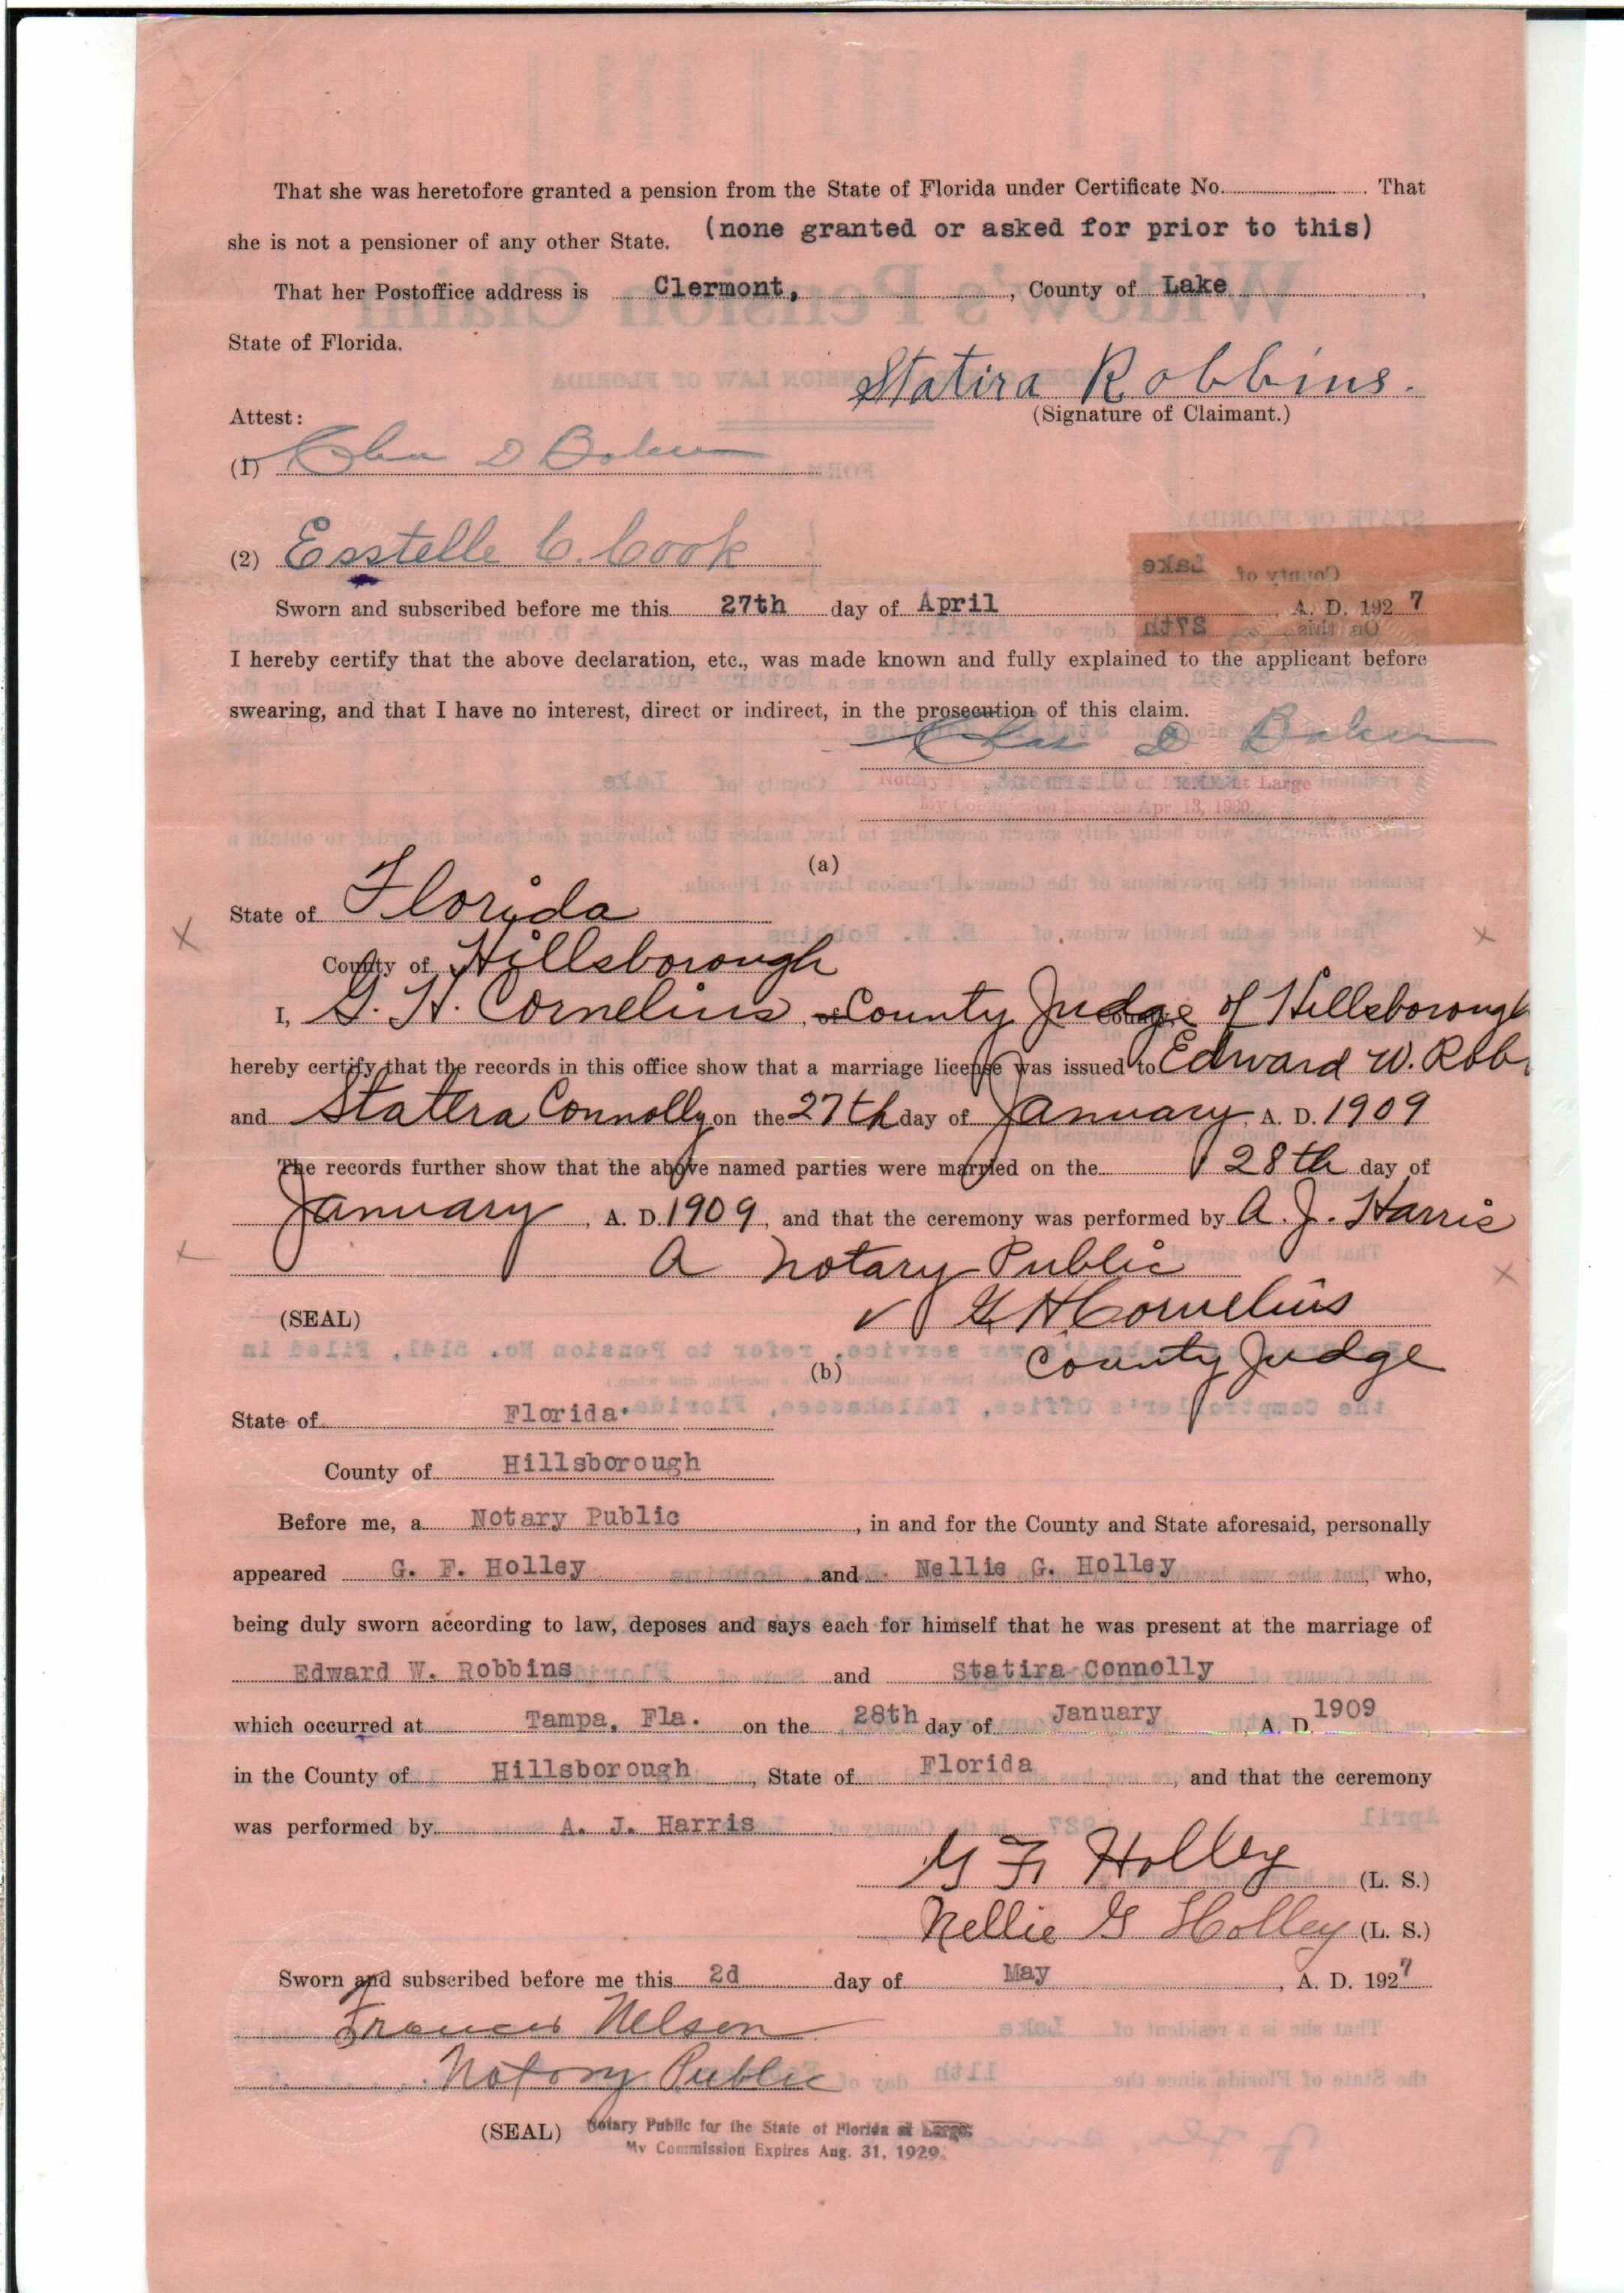 That she was heretofore granted a pension from the State of Florida under Certificate No. . That
she is not a pensioner of any other State. (none granted or asked for prior to this)
That her Postoffice address is Clermont, , County of Lake ,
State of Florida.
Statira Robbins.
Attest: (Signature of Claimant.)
(1) Chas D Baker
(2) Esstelle C. Cook
Sworn and subscribed before me this 27th day of April , A. D. 192 7
I hereby certify that the above declaration, etc., was made known and fully explained to the applicant before
swearing, and that I have no interest, direct or indirect, in the prosecution of this claim.
Chas D Baker
Notary at Large
My Commission Expires Apr. 13, 1930.
(a)
State of Florida
County of Hillsborough
I, G. H. Cornelius, of County Judge of Hillsborough
hereby certify that the records in this office show that a marriage license was issued to Edward W. Rob
and Statera Connolly on the 27th day of January, A. D. 1909
The records further show that the above named parties were married on the 28th day of
January , A. D. 1909, and that the ceremony was performed by A. J. Harris
A Notary Public
(SEAL) G. H. Cornelius
County Judge
(b)
State of Florida.
County of Hillsborough
Before me, a Notary Public , in and for the County and State aforesaid, personally
appeared G. F. Holley and Nellie G. Holley , who,
being duly sworn according to law, deposes and says each for himself that he was present at the marriage of
Edward W. Robbins and Statira Connolly
which occurred at Tampa, Fla. on the 28th day of January , A. D. 1909
in the County of Hillsborough , State of Florida , and that the ceremony
was performed by A. J. Harris
G F Holley (L. S.)
Nellie G Holley (L. S.)
Sworn and subscribed before me this 2d day of May , A. D. 1927
Frances Nelson
Notary Public
(SEAL) Notary Public for the State of Florida at Large.
My Commission Expires Aug. 31, 1929.